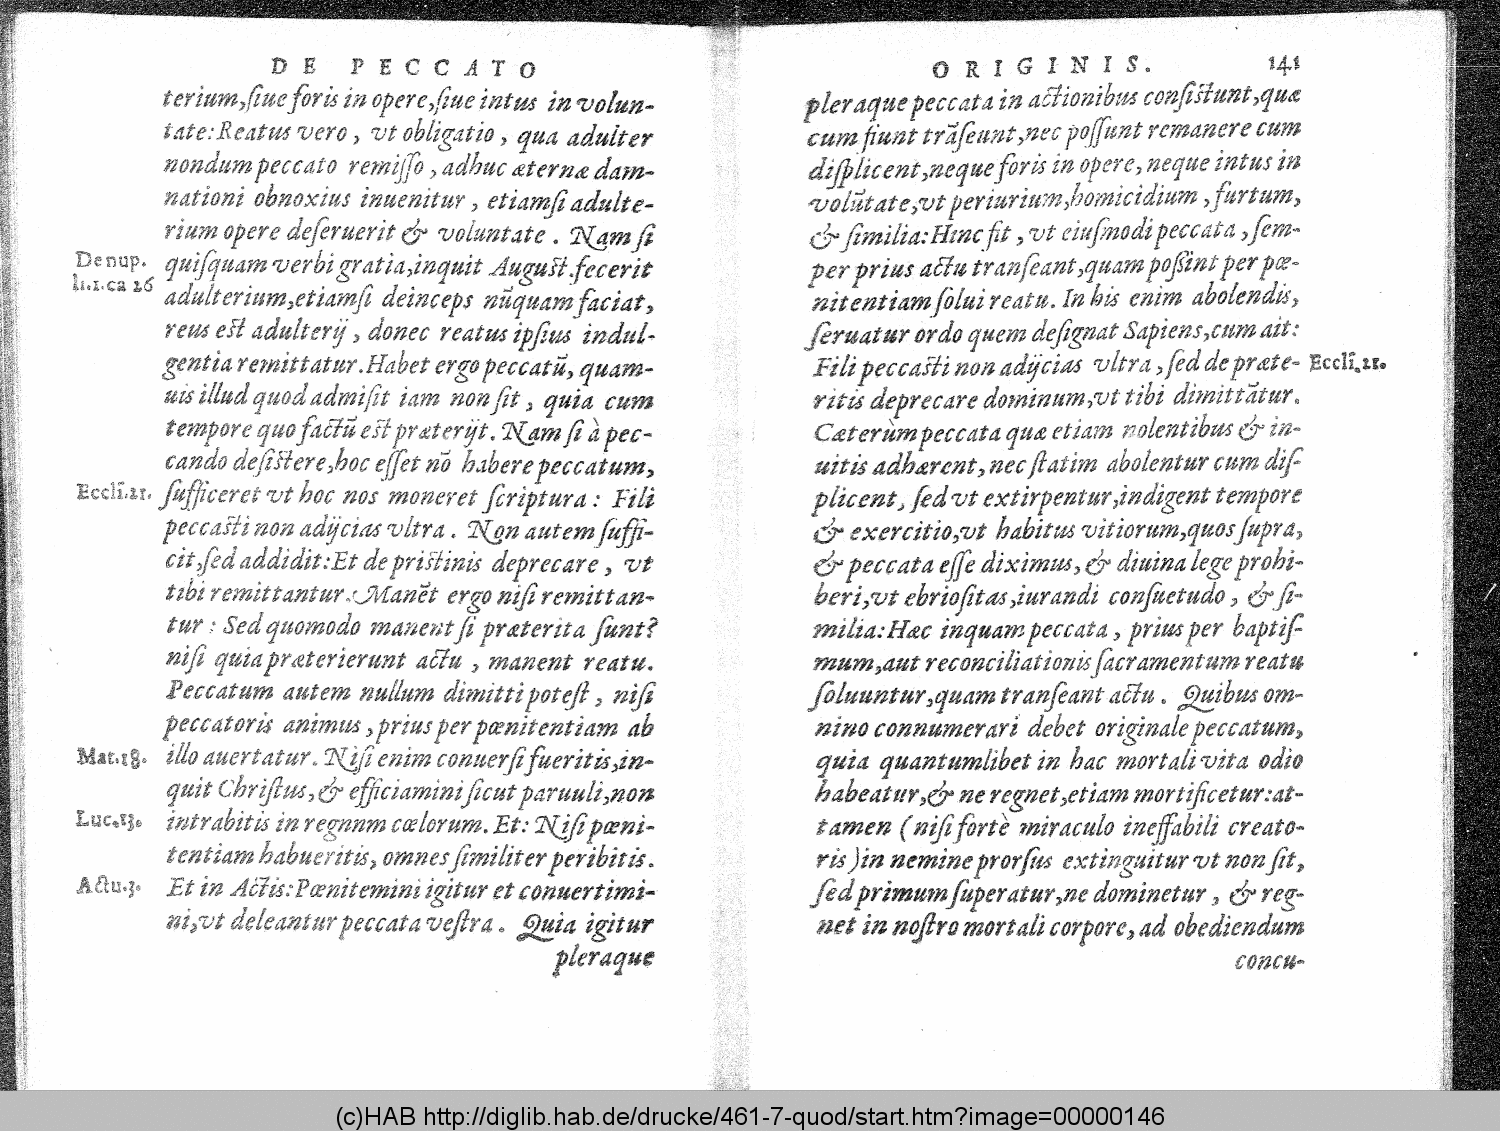 DE PECCATO
terium,ſiue foris in opere,ſiue intus in volun-
tate:Reatus vero, vt obligatio, qua adulter
nondum peccato remiſſo, adhuc æternæ dam-
nationi obnoxius inuenitur, etiamſi adulte-
rium opere deſeruerit & voluntate. Nam ſi
De nup.
li.1.ca 16
quiſquam verbi gratia,inquit Auguſt.fecerit
adulterium,etiamſi deinceps nūquam faciat,
reus eſt adulterij, donec reatus ipſius indul-
gentia remittatur.Habet ergo peccatū, quam-
uis illud quod admiſit iam non ſit, quia cum
tempore quo factū eſt præterijt. Nam ſi à pec-
cando deſiſtere,hoc eſſet nō habere peccatum,
Eccli.21.
ſufficeret vt hoc nos moneret ſcriptura: Fili
peccaſti non adijcias vltra. Non autem ſuffi-
cit,ſed addidit:Et de priſtinis deprecare, vt
tibi remittantur. Manēt ergo niſi remittan-
tur: Sed quomodo manent ſi præterita ſunt?
niſi quia præterierunt actu, manent reatu.
Peccatum autem nullum dimitti poteſt, niſi
peccatoris animus, prius per pœnitentiam ab
Mat.18.
illo auertatur. Niſi enim conuerſi fueritis,in-
quit Chriſtus,& efficiamini ſicut paruuli,non
Luc.13.
intrabitis in regnnm cœlorum. Et: Niſi pœni-
tentiam habueritis, omnes ſimiliter peribitis.
Actu.3.
Et in Actis:Pœnitemini igitur et conuertimi-
ni,vt deleantur peccata veſtra. Quia igitur
pleraque
ORIGINIS. 141
pleraque peccata in actionibus conſiſtunt,quæ
cum fiunt trāſeunt,nec poſſunt remanere cum
diſplicent,neque foris in opere,neque intus in
volūtate,vt periurium,homicidium,furtum,
& ſimilia:Hinc fit, vt eiuſmodi peccata, ſem-
per prius actu tranſeant,quam poſſint per pœ-
nitentiam ſolui reatu. In his enim abolendis,
ſeruatur ordo quem deſignat Sapiens,cum ait:
Fili peccaſti non adijcias vltra, ſed de præte-
Eccli.21.
ritis deprecare dominum,vt tibi dimittātur.
Cæterùm peccata quæ etiam nolentibus & in-
uitis adhærent, nec ſtatim abolentur cum diſ-
plicent, ſed vt extirpentur,indigent tempore
& exercitio,vt habitus vitiorum,quos ſupra,
& peccata eſſe diximus,& diuina lege prohi-
beri,vt ebrioſitas,iurandi conſuetudo, & ſi-
milia:Hæc inquam peccata, prius per baptiſ-
mum,aut reconciliationis ſacramentum reatu
ſoluuntur,quam tranſeant actu. Quibus om-
nino connumerari debet originale peccatum,
quia quantumlibet in hac mortali vita odio
habeatur,& ne regnet,etiam mortificetur:at-
tamen (niſi fortè miraculo ineffabili creato-
ris)in nemine prorſus extinguitur vt non ſit,
ſed primum ſuperatur,ne dominetur, & reg-
net in noſtro mortali corpore, ad obediendum
concu-
(c)HAB http://diglib.hab.de/drucke/461-7-quod/start.htm?image=00000146